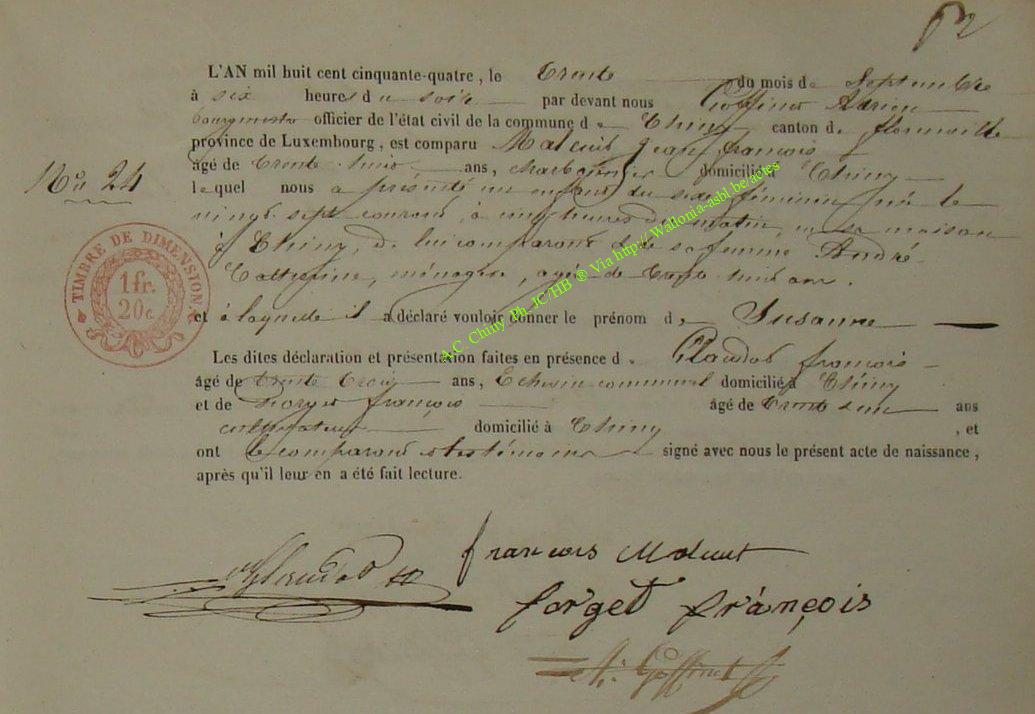 52
L'AN mil huit cent cinquante-quatre, le trente du mois de Septembre
à six heures du soir par devant nous Goffinet Adrien
bourgmestre officier de l'état civil de la commune de Chiny canton de florenville
province de Luxembourg, est comparu jean françois
agé de trente huit ans, charbonnier domicilié à Chiny
lequel nous a présenté un enfant du sexe féminin né le
No 24
vingt sept courant, à cinq heures du matin, en sa maison
à Chiny, de lui comparant et de sa femme André
Catherine, ménagère, agée de trente huit ans.
et à laquelle il a déclaré vouloir donner le prénom de Susanne
TIMBRE DE DIMENSION.
1 fr.
20 c
Les dites déclaration et présentation faites en présence de françois
âgé de trente trois ans, Echevin communal domicilié à Chiny
et de forget françois âgé de trente ans
cultivateur domicilié à Chiny, et
ont le comparant et les témoins signé avec nous le présent acte de naissance,
après qu'il leur en a été fait lecture.
françois
forget françois
A. Goffinet
A.C. Chiny Ph. JC/HB ® Via http://Wallonia-asbl.be/actes